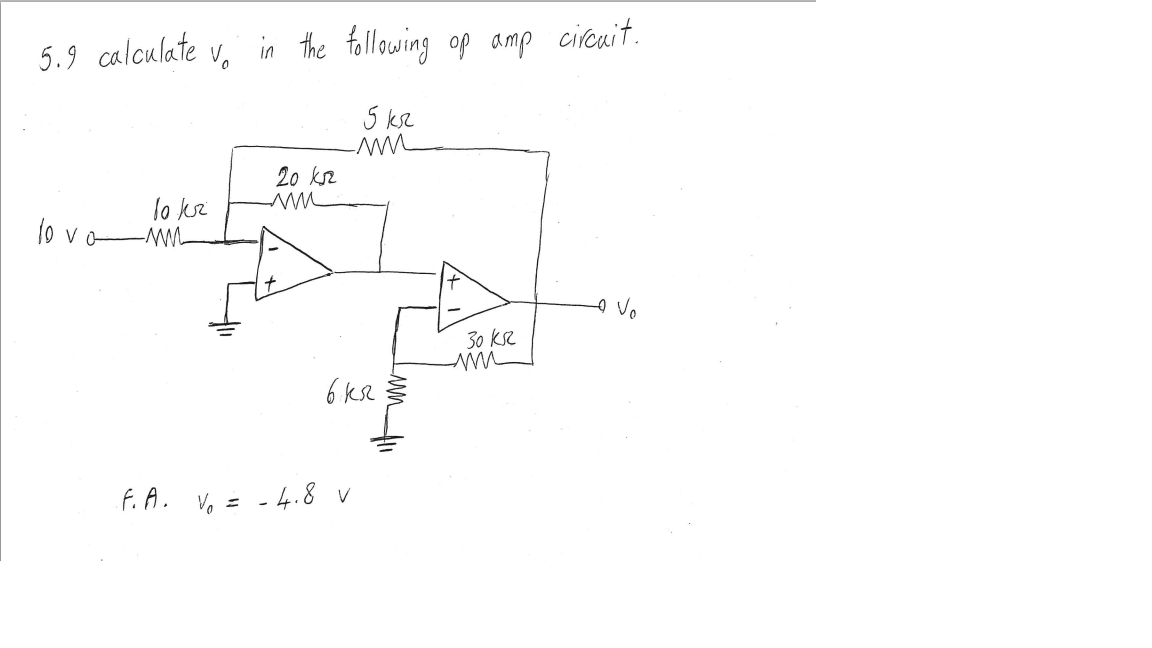 5.9 calculate v₀ in the following op amp circuit.
5 kΩ
20 kΩ
10 kΩ
10 v
-
+
+
-
V₀
30 kΩ
6 kΩ
F.A. V₀ = -4.8 v